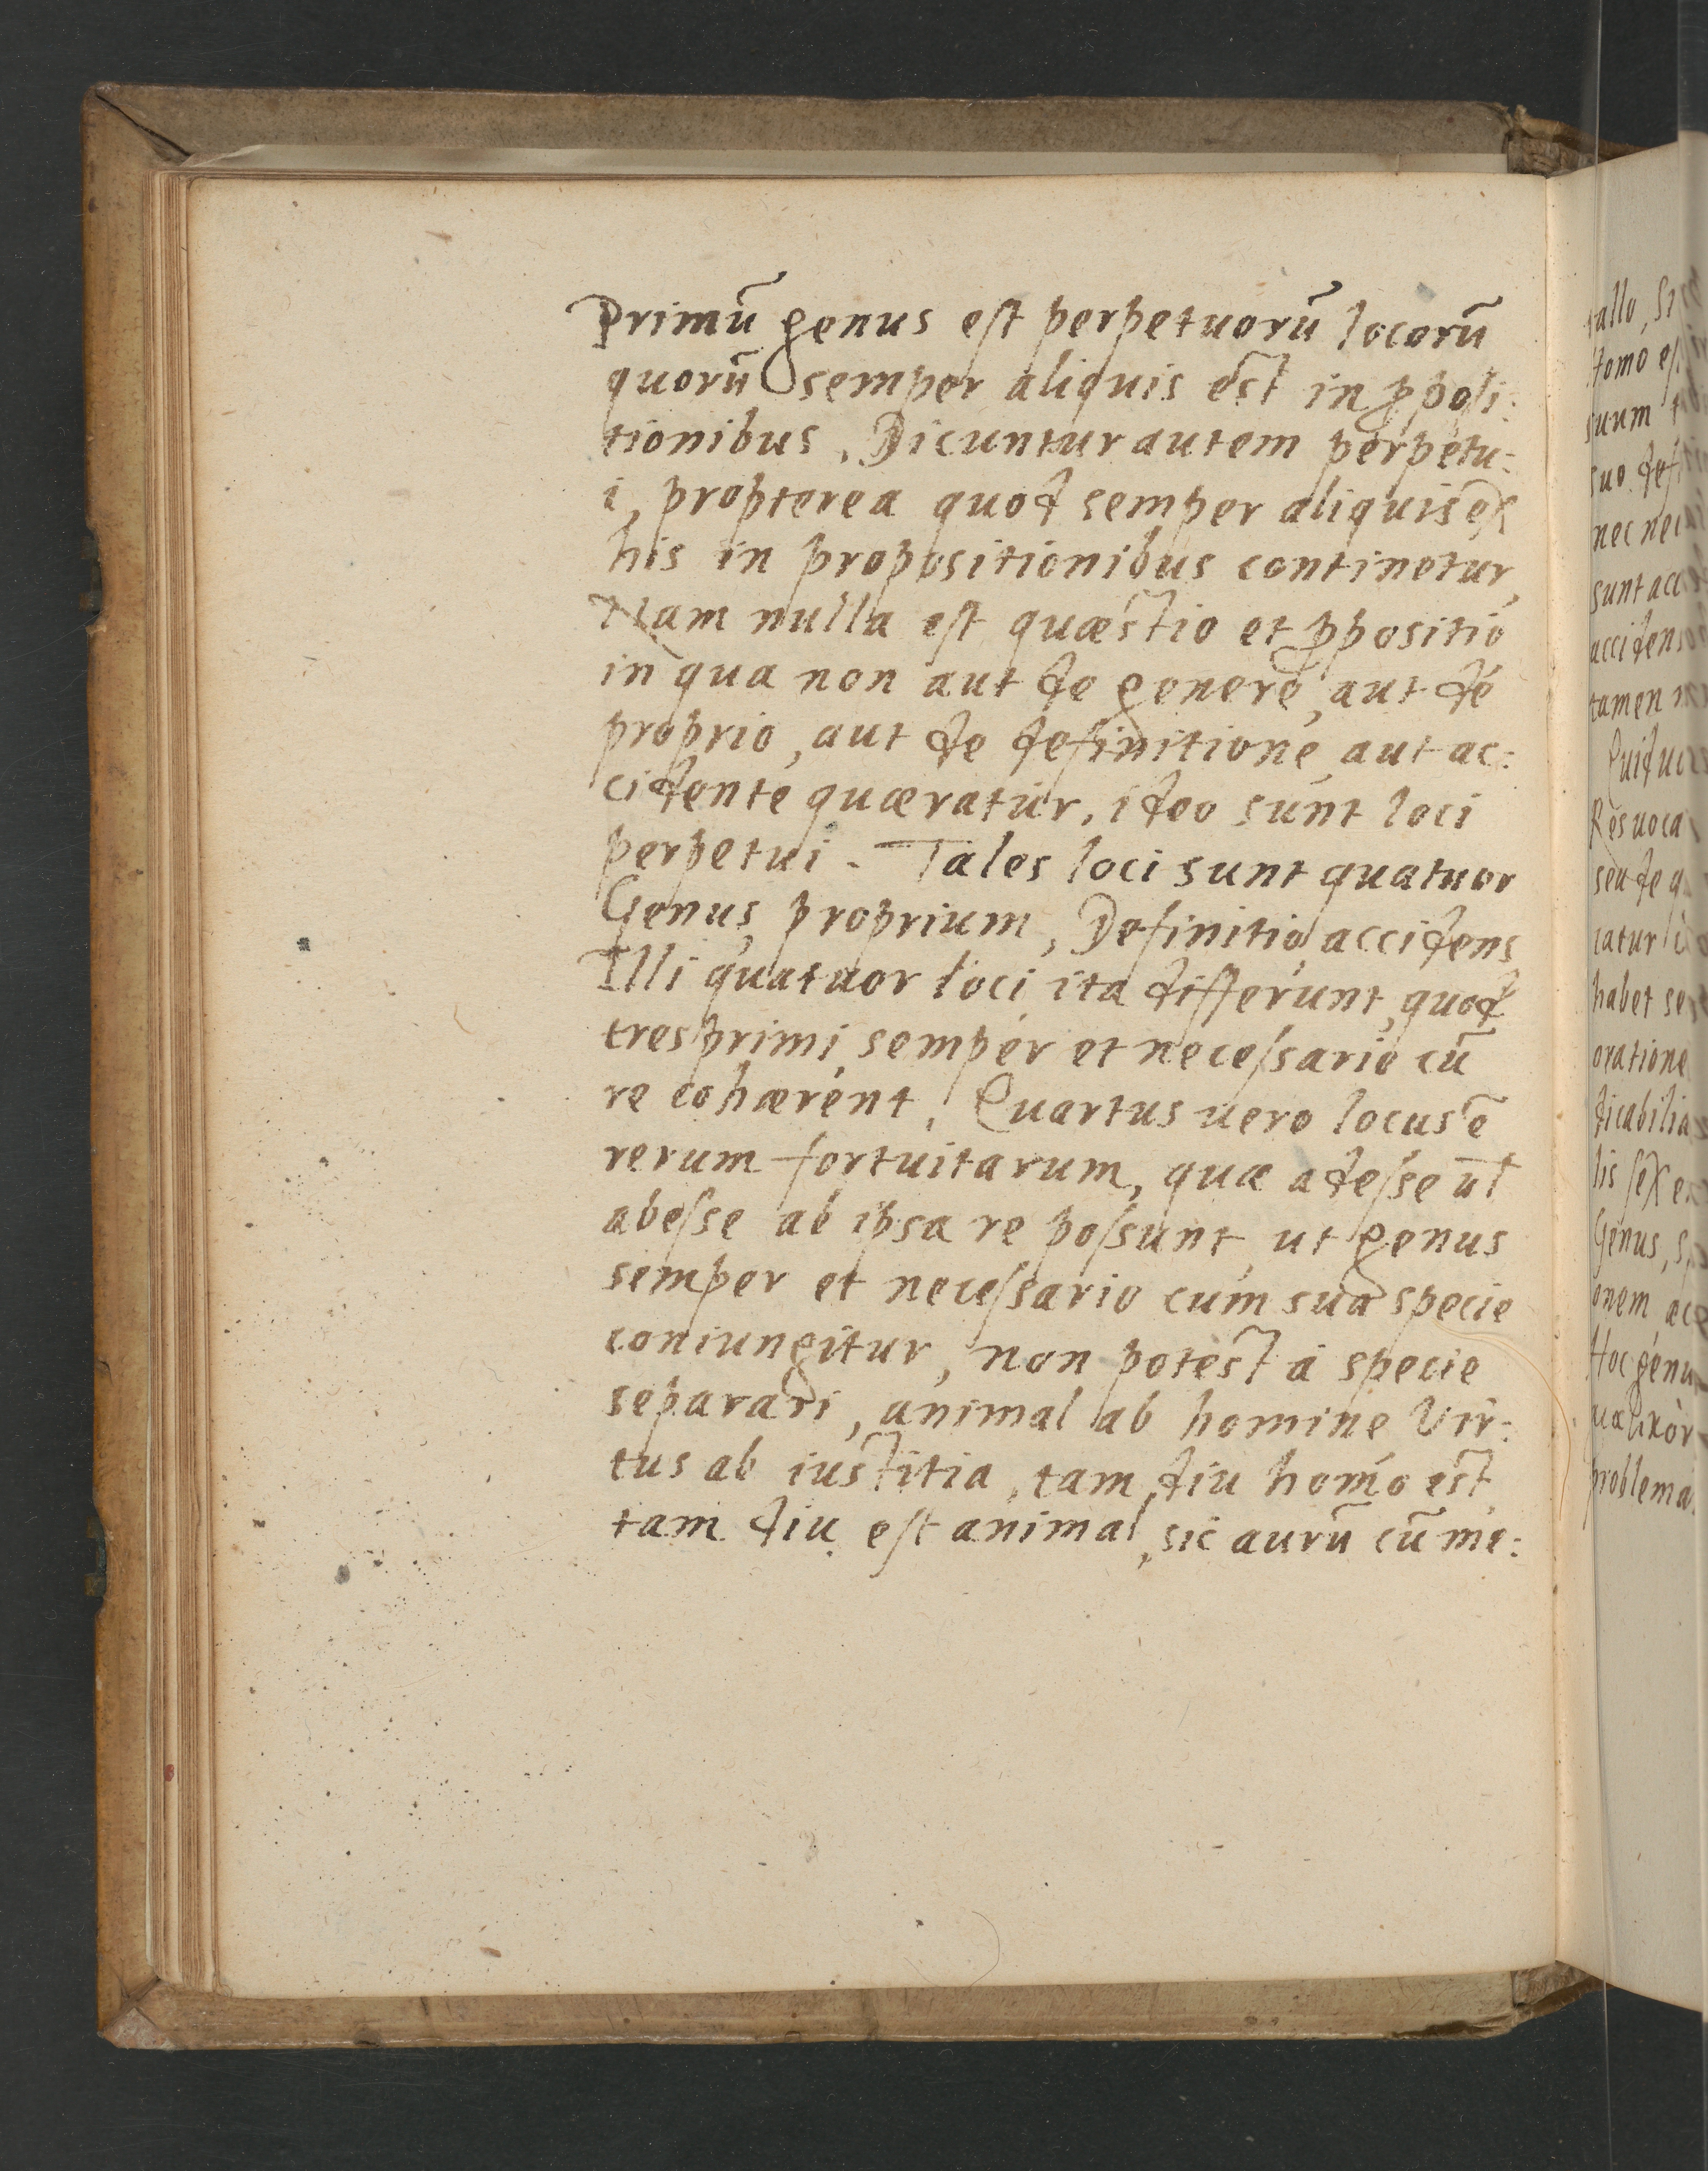 Primū genus est perpetuorū locorū
quorū semper aliquis est in ꝓposi:
tionibus, Dicuntur autem perpetu:
i, propterea quod semper aliquis ex
his in propositionibus continetur,
Nam nulla est quæstio et ꝓpositio
in qua non aut de genere, aut de
proprio, aut de definitione, aut ac:
cidente quæratur, ideo sunt loci
perpetui. Tales loci sunt quatuor
Genus, proprium, Definitio, accidens
Illi quatuor loci ita differunt, quod
tres primi, semper et necessario cū
re cohærent, Quartus uero locus ē
rerum fortuitarum, quæ adesse ul̄
abesse ab ipsa re possunt, ut genus
semper et necessario cum sua specie
coniungitur, non potest à specie
separari, animal ab homine Vir:
tus ab iustitia, tam diu homo est,
tam diu est animal, sic aurū cū me:
tallo, Si
Homo es
suum
suo def
nec nec
sunt acc
accidens
tamen
Quid uo
Res uoca
seu de q
catur
habet se
oratione
dicabilia
lis sex e
Genus, s
onem ac
Hoc genu
problema